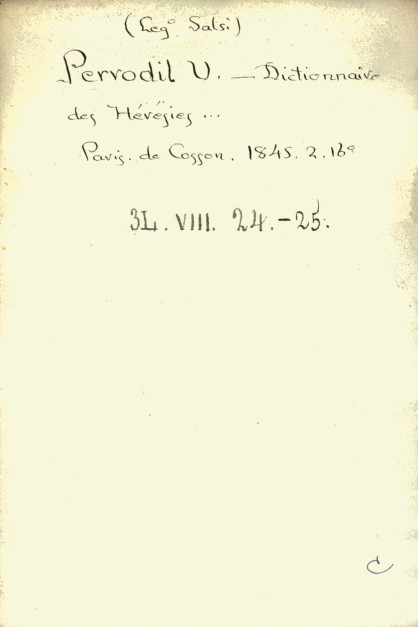 (Leg° Salsi)
Perrodil V. — Dictionnaire
des Hérésies ...
Paris. de Cosson. 1845. 2. 16°
3L. VIII. 24.-25.
C